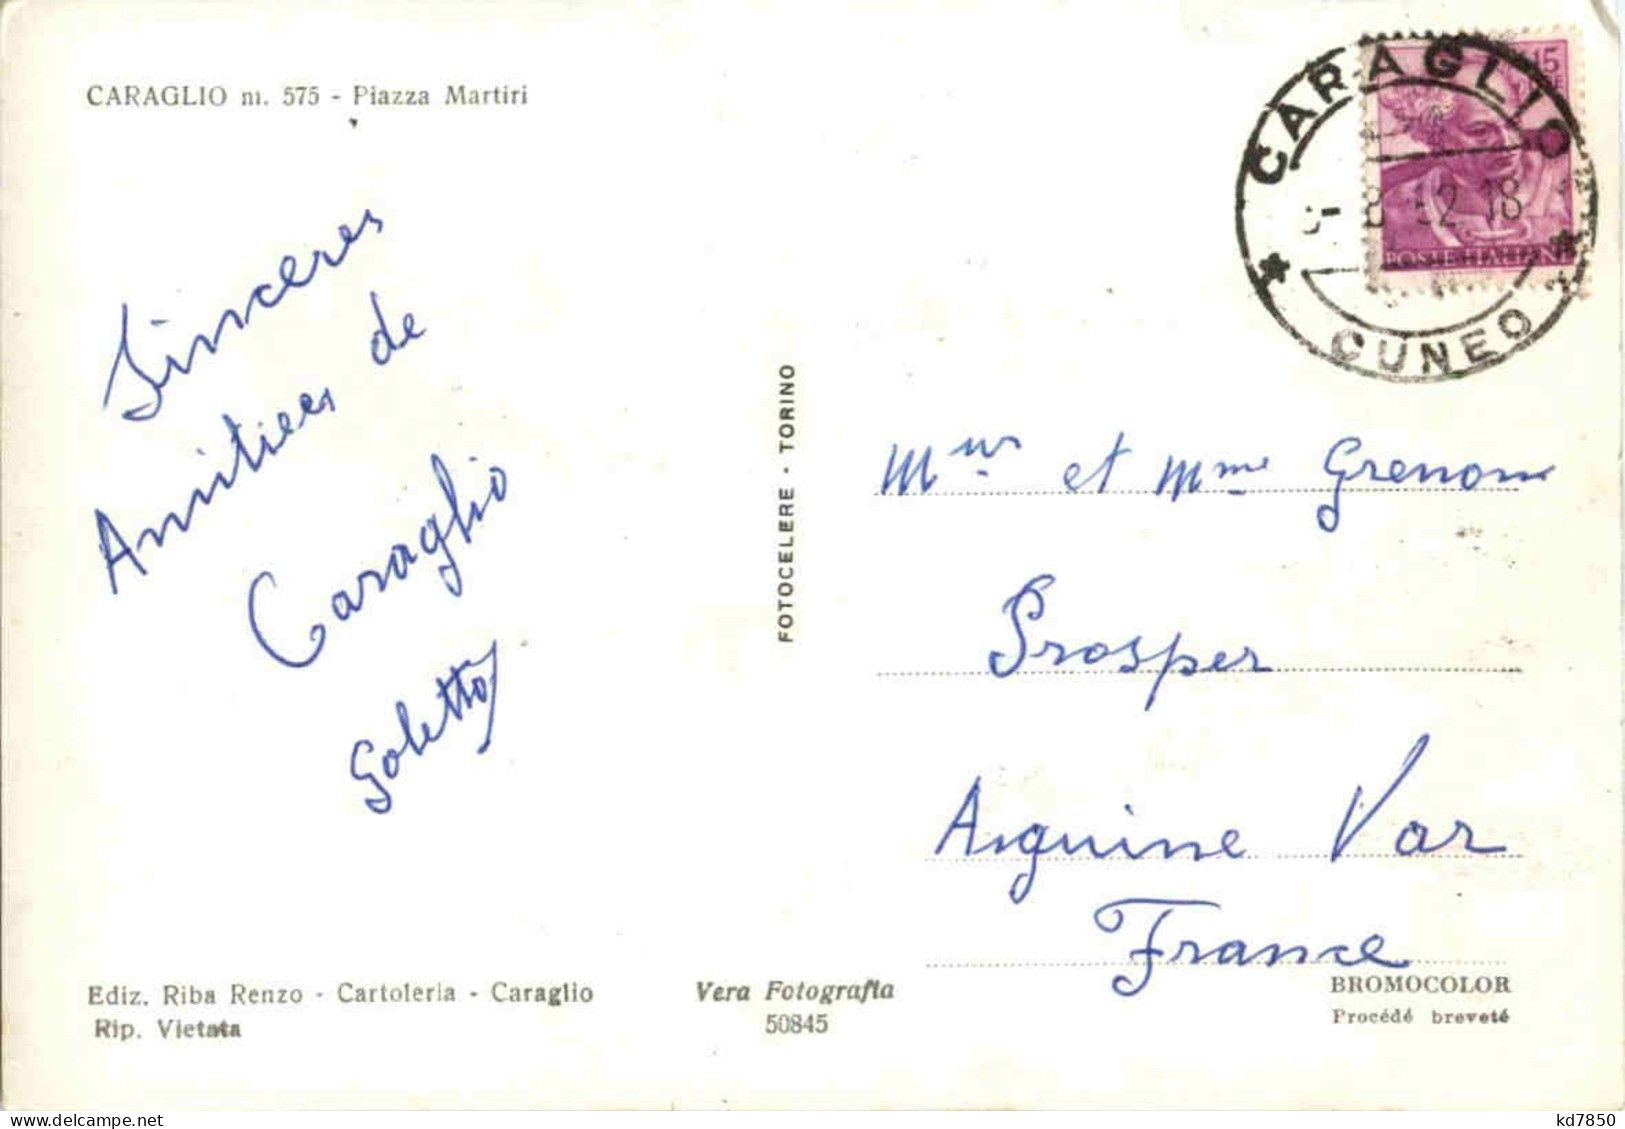 CARAGLIO m. 575 - Piazza Martiri
Sinceres
Amitiées de
Caraglio
Goletto
FOTOCELERE - TORINO
CARAGLIO
8 62 18
CUNEO
15
POSTE ITALIANE
Mur et Mme Grenon
Prosper
Aiguine Var
France
Ediz. Riba Renzo - Cartoleria - Caraglio
Rip. Vietata
Vera Fotografia
50845
BROMOCOLOR
Procédé breveté
kd7850